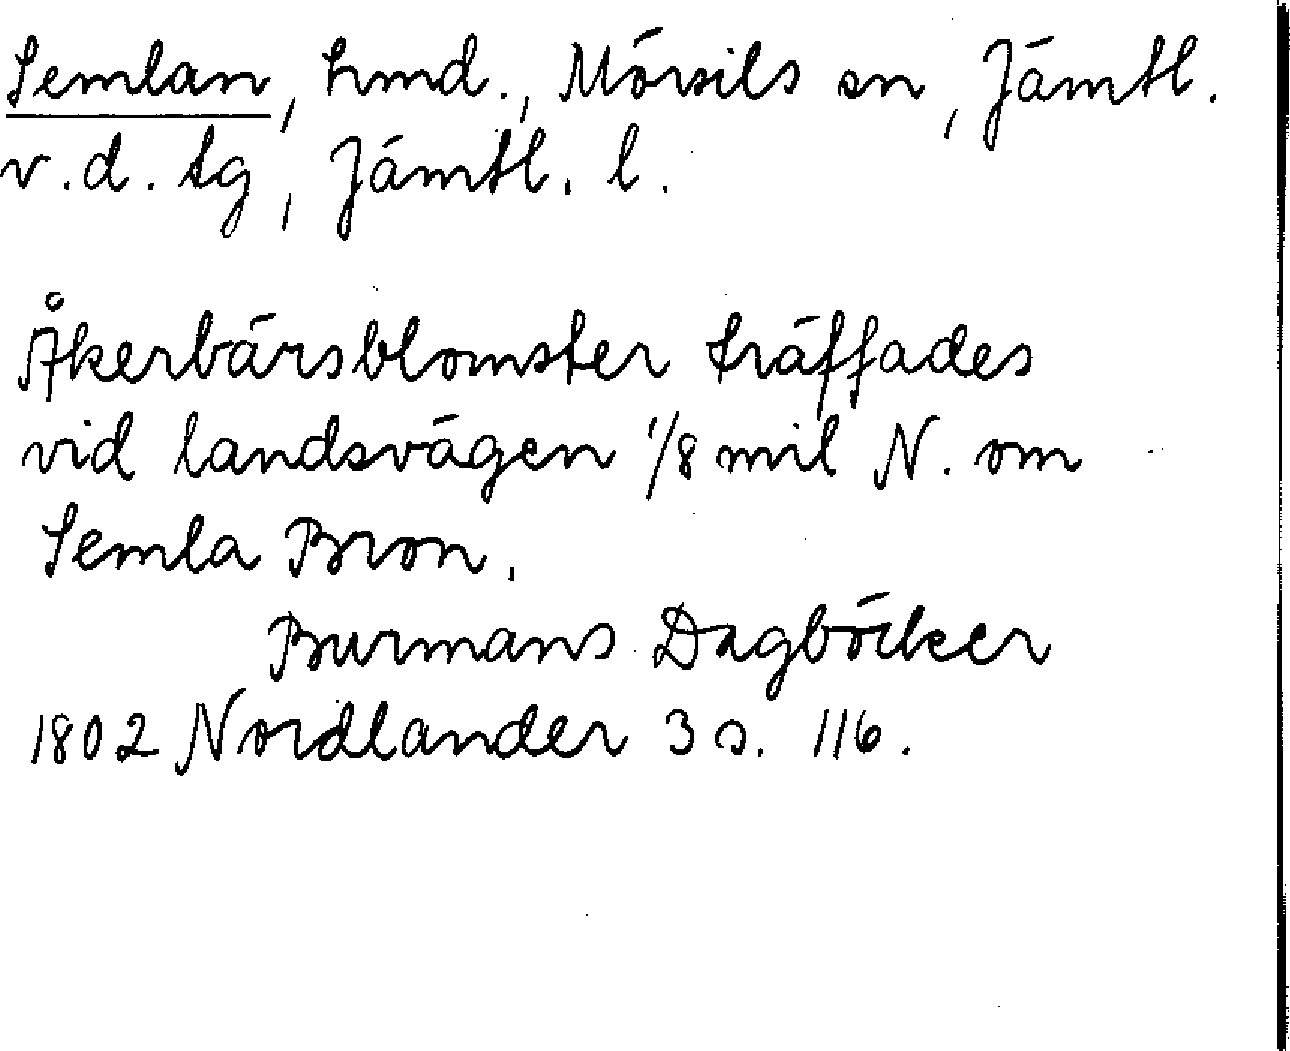 Semlan, hmd., Mörsils sn, Jämtl.
v.d. tg, Jämtl. l.
Åkerbärsblomster träffades
vid landsvägen 1/8 mil N. om
Semla Bron.
Burmans Dagböcker
1802 Nordlander 3 s. 116.